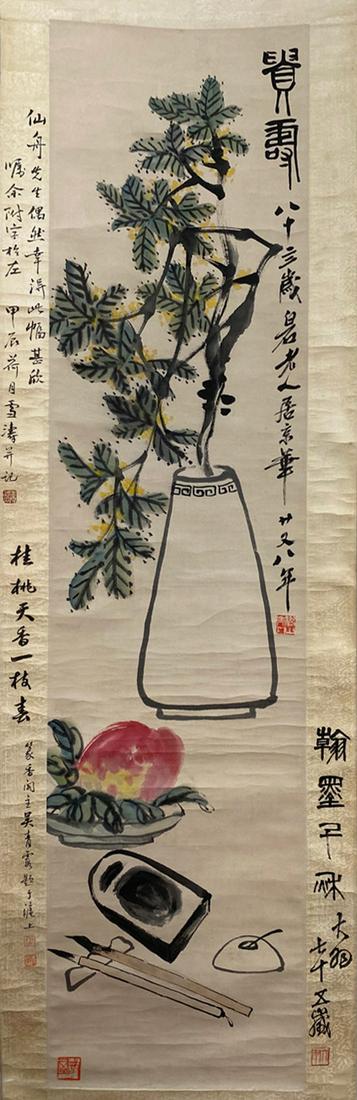 貴壽
八十三歲白石老人居京華廿又八年
仙舟先生偶然幸得此幅甚欣
囑余附字於左
甲辰荷月雪濤并記
桂桃天香一枝春
篆香閣主吴青霞題于滬上
翰墨千秋
大羽
七十五歲